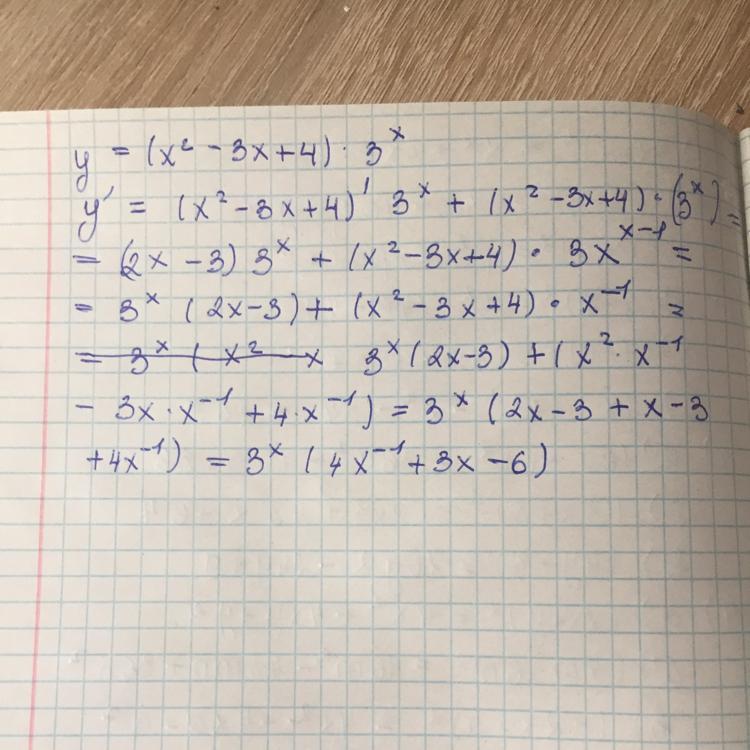 y = (x² - 3x + 4) · 3ˣ
y' = (x² - 3x + 4)' 3ˣ + (x² - 3x + 4) · (3ˣ) =
= (2x - 3) 3ˣ + (x² - 3x + 4) · 3xˣ⁻¹ =
= 3ˣ (2x - 3) + (x² - 3x + 4) · x⁻¹ =
= 3ˣ ( x² x 3ˣ (2x - 3) + (x² · x⁻¹
- 3x · x⁻¹ + 4 · x⁻¹) = 3ˣ (2x - 3 + x - 3
+ 4x⁻¹) = 3ˣ (4x⁻¹ + 3x - 6)